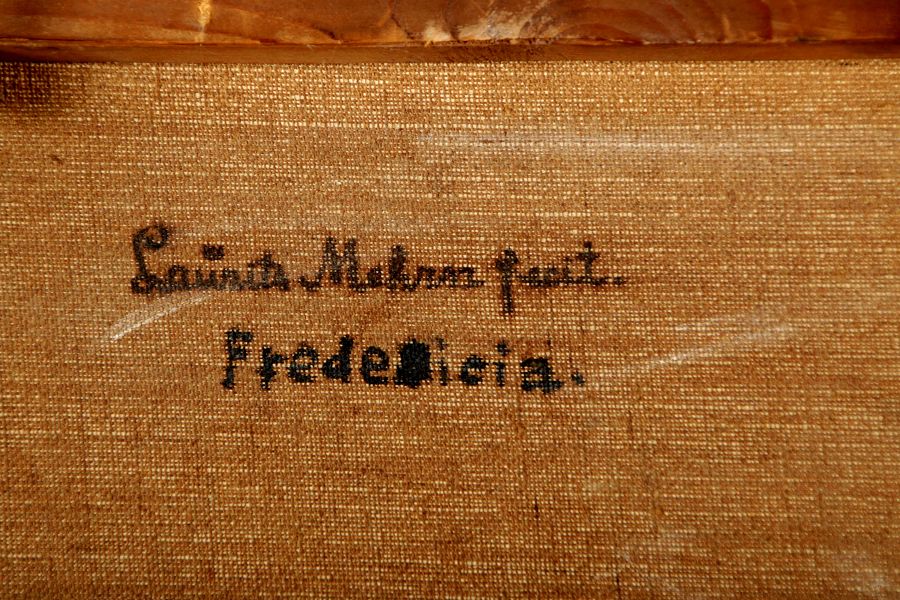 Laurits Mehrn fecit.
Fredericia.